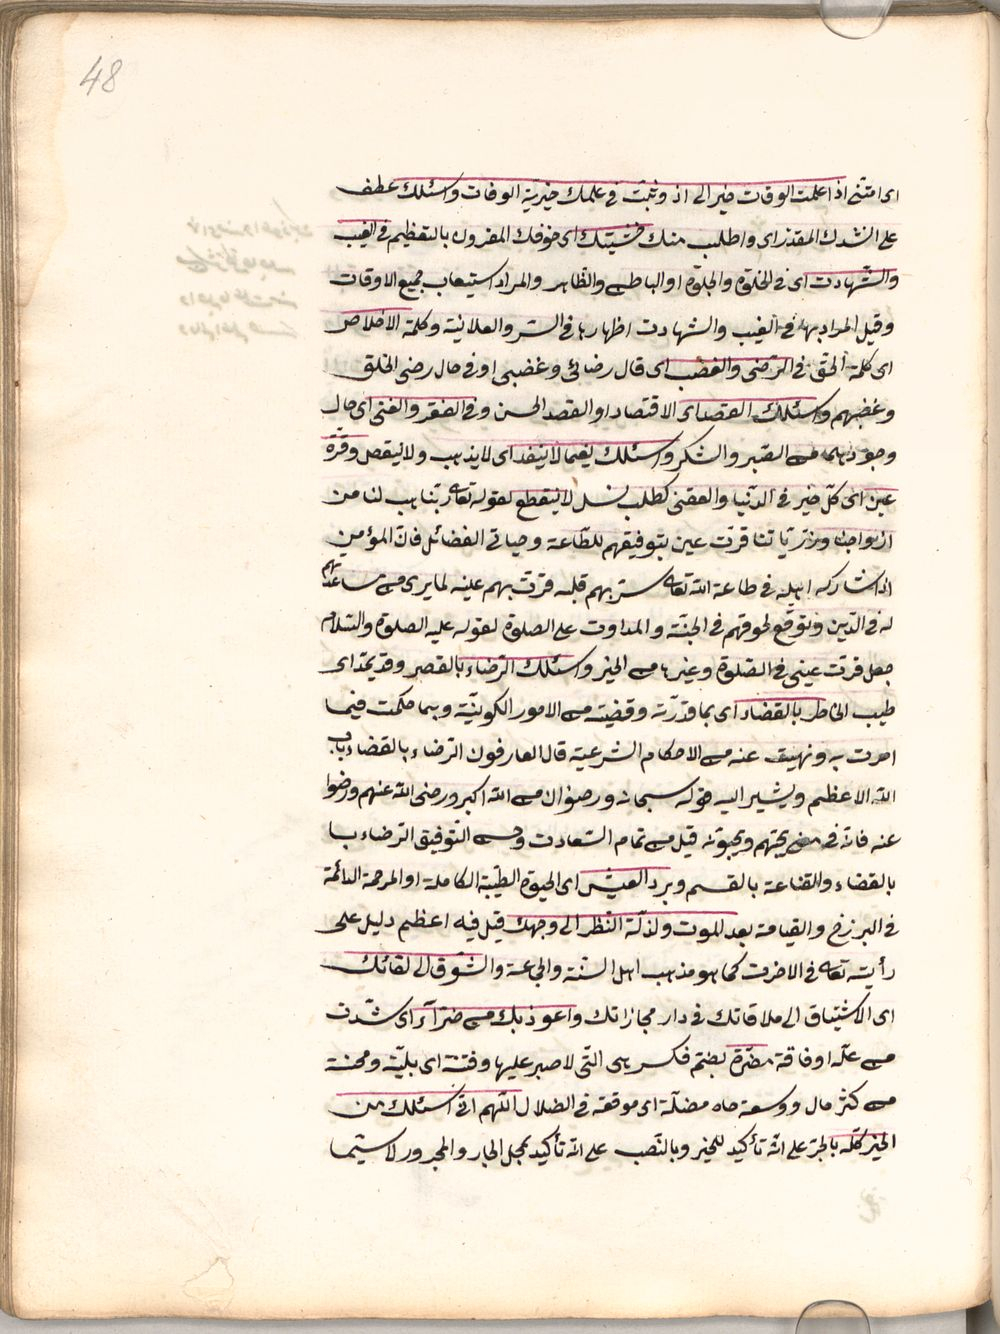 48
اى امتنى اذا علمت الوقات خير الى اذ وثبت فى علمك خيرية الوفات واسئلك عطف
على الشدك المقدر اى واطلب منك خشيتك اى خوفك المقرون بالتعظيم فى الغيب
والشهادت اى فى الخلوة والجلوة او الباطن والظاهر والمراد استيعاب جميع الاوقات
وقيل المراد بها فى الغيب والشهادت اظهارها فى السر والعلانية وكلمة الاخلاص
اى كلمة الحق فى الرضى والغضب اى قال رضائى وغضبى او فى حال رضى الخلق
وغضبهم واسئلك القصد اى الاقتصاد او القصد الحسن وفى الفقر والغنى اى حال
وجودهما من الصبر والشكر واسئلك نعيما لا ينفد اى لا يذهب ولا ينقص وقرة
عين اى كل خير فى الدنيا والعقبى كطلب نسل لا ينقطع لقوله تعالى ربنا هب لنا من
ازواجنا وذرياتنا قرت عين بتوفيقهم للطاعة وحياتى الفضائل فان المؤمن
اذا شاركه اهله فى طاعة الله تعالى سر بهم قلبه قرت بهم عينه لما يرى من ساعدتهم
له فى الدين وتوقع لحوقهم فى الجنة والمداوت على الصلوة لقوله عليه الصلوة والسلام
جعل قرت عينى فى الصلوة وغيرها من الخير واسئلك الرضاء بالقصر وقد يمد اى
طيب الخاطر بالقضاء اى بما قدرته وقضيته من الامور الكونية وبما حكمت فيما
امرت به ونهيت عنه من الاحكام الشرعية قال العارفون الرضاء بالقضاء باب
الله الاعظم ويشير اليه قوله سبحانه ورضوان من الله اكبر ورضى الله عنهم ورضوا
عنه فانه فى يحبهم ويحبونه قيل من تمام السعادت وحسن التوفيق الرضاء با
بالقضاء والقناعة بالقسم وبرد العيش اى الحيوة الطيبة الكاملة او المرحمة الدائمة
فى البرزخ والقيامة بعد الموت ولذلة النظر الى وجهك قيل فيه اعظم دليل على
رأيته تعالى فى الاخرت كما هو مذهب اهل السنة والجماعة والشوق الى لقائك
اى الاشتياق الى ملاقاتك فى دار مجازاتك واعوذ بك من ضرآء اى شدت
من علة او فاقة مضرة بضم فكسر هى التى لا صبر عليها وفتنة اى بلية ومحنة
من كثر مال ووسعة جاه مضلة اى موقعة فى الضلال اللهم انى اسئلك من
الخير كله بالجر على انه تأكيد للخير وبالنصب على انه تأكيد لمحل الجار والمجرور لا سيما